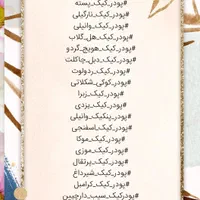 #پودر_کیک_پسته
#پودر_کیک_نارگیلی
#پودر_کیک_وانیلی
#پودر_کیک_هل_گلاب
#پودر_کیک_هویج_گردو
#پودر_کیک_دبل_چاکلت
#پودر_کیک_ردولوت
#پودر_کوکی_شکلاتی
#پودر_کیک_زبرا
#پودر_کیک_یزدی
#پودر_پنکیک_وانیلی
#پودر_کیک_اسفنجی
#پودر_کیک_موکا
#پودر_کیک_موزی
#پودر_کیک_پرتقال
#پودر_کیک_شیرداغ
#پودر_کیک_کرامبل
#پودرکیک_سیب_دارچین